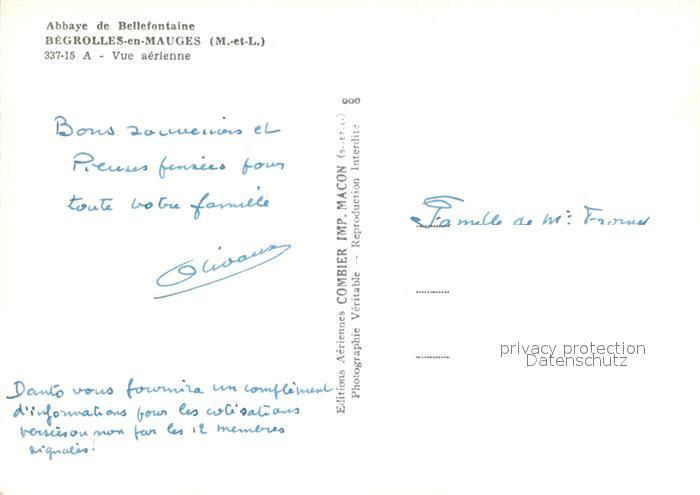 Abbaye de Bellefontaine
BÉGROLLES-en-MAUGES (M.-et-L.)
337-15 A - Vue aérienne
Bons souvenirs et
Pieuses pensées pour
toute votre famille
Danto vous fournira un complément
d'informations pour les cotisations
versées ou non par les 12 membres
signalés!
Editions Aériennes COMBIER IMP. MACON (S.-et-L.)
Photographie Véritable — Reproduction Interdite
Famille de Mr
privacy protection
Datenschutz